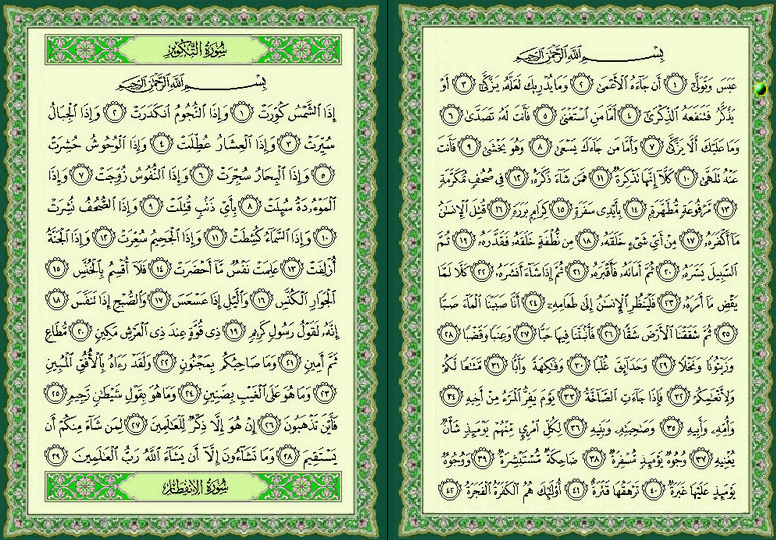 بِسْمِ ٱللَّهِ ٱلرَّحْمَٰنِ ٱلرَّحِيمِ
عَبَسَ وَتَوَلَّىٰٓ ١ أَن جَآءَهُ ٱلْأَعْمَىٰ ٢ وَمَا يُدْرِيكَ لَعَلَّهُۥ يَزَّكَّىٰٓ ٣ أَوْ
يَذَّكَّرُ فَتَنفَعَهُ ٱلذِّكْرَىٰٓ ٤ أَمَّا مَنِ ٱسْتَغْنَىٰ ٥ فَأَنتَ لَهُۥ تَصَدَّىٰ ٦
وَمَا عَلَيْكَ أَلَّا يَزَّكَّىٰ ٧ وَأَمَّا مَن جَآءَكَ يَسْعَىٰ ٨ وَهُوَ يَخْشَىٰ ٩ فَأَنتَ
عَنْهُ تَلَهَّىٰ ١٠ كَلَّآ إِنَّهَا تَذْكِرَةٌ ١١ فَمَن شَآءَ ذَكَرَهُۥ ١٢ فِى صُحُفٍ مُّكَرَّمَةٍ
١٣ مَّرْفُوعَةٍ مُّطَهَّرَةٍۭ ١٤ بِأَيْدِى سَفَرَةٍ ١٥ كِرَامٍۭ بَرَرَةٍ ١٦ قُتِلَ ٱلْإِنسَٰنُ
مَآ أَكْفَرَهُۥ ١٧ مِنْ أَىِّ شَىْءٍ خَلَقَهُۥ ١٨ مِن نُّطْفَةٍ خَلَقَهُۥ فَقَدَّرَهُۥ ١٩ ثُمَّ
ٱلسَّبِيلَ يَسَّرَهُۥ ٢٠ ثُمَّ أَمَاتَهُۥ فَأَقْبَرَهُۥ ٢١ ثُمَّ إِذَا شَآءَ أَنشَرَهُۥ ٢٢ كَلَّا لَمَّا
يَقْضِ مَآ أَمَرَهُۥ ٢٣ فَلْيَنظُرِ ٱلْإِنسَٰنُ إِلَىٰ طَعَامِهِۦٓ ٢٤ أَنَّا صَبَبْنَا ٱلْمَآءَ صَبًّا
٢٥ ثُمَّ شَقَقْنَا ٱلْأَرْضَ شَقًّا ٢٦ فَأَنۢبَتْنَا فِيهَا حَبًّا ٢٧ وَعِنَبًا وَقَضْبًا ٢٨
وَزَيْتُونًا وَنَخْلًا ٢٩ وَحَدَآئِقَ غُلْبًا ٣٠ وَفَٰكِهَةً وَأَبًّا ٣١ مَّتَٰعًا لَّكُمْ
وَلِأَنْعَٰمِكُمْ ٣٢ فَإِذَا جَآءَتِ ٱلصَّآخَّةُ ٣٣ يَوْمَ يَفِرُّ ٱلْمَرْءُ مِنْ أَخِيهِ ٣٤
وَأُمِّهِۦ وَأَبِيهِ ٣٥ وَصَٰحِبَتِهِۦ وَبَنِيهِ ٣٦ لِكُلِّ ٱمْرِئٍ مِّنْهُمْ يَوْمَئِذٍ شَأْنٌ
يُغْنِيهِ ٣٧ وُجُوهٌ يَوْمَئِذٍ مُّسْفِرَةٌ ٣٨ ضَاحِكَةٌ مُّسْتَبْشِرَةٌ ٣٩ وَوُجُوهٌ
يَوْمَئِذٍ عَلَيْهَا غَبَرَةٌ ٤٠ تَرْهَقُهَا قَتَرَةٌ ٤١ أُو۟لَٰٓئِكَ هُمُ ٱلْكَفَرَةُ ٱلْفَجَرَةُ ٤٢
سُورَةُ التَّكْوِيرِ
بِسْمِ ٱللَّهِ ٱلرَّحْمَٰنِ ٱلرَّحِيمِ
إِذَا ٱلشَّمْسُ كُوِّرَتْ ١ وَإِذَا ٱلنُّجُومُ ٱنكَدَرَتْ ٢ وَإِذَا ٱلْجِبَالُ
سُيِّرَتْ ٣ وَإِذَا ٱلْعِشَارُ عُطِّلَتْ ٤ وَإِذَا ٱلْوُحُوشُ حُشِرَتْ
٥ وَإِذَا ٱلْبِحَارُ سُجِّرَتْ ٦ وَإِذَا ٱلنُّفُوسُ زُوِّجَتْ ٧ وَإِذَا
ٱلْمَوْءُۥدَةُ سُئِلَتْ ٨ بِأَىِّ ذَنۢبٍ قُتِلَتْ ٩ وَإِذَا ٱلصُّحُفُ نُشِرَتْ
١٠ وَإِذَا ٱلسَّمَآءُ كُشِطَتْ ١١ وَإِذَا ٱلْجَحِيمُ سُعِّرَتْ ١٢ وَإِذَا ٱلْجَنَّةُ
أُزْلِفَتْ ١٣ عَلِمَتْ نَفْسٌ مَّآ أَحْضَرَتْ ١٤ فَلَآ أُقْسِمُ بِٱلْخُنَّسِ ١٥
ٱلْجَوَارِ ٱلْكُنَّسِ ١٦ وَٱلَّيْلِ إِذَا عَسْعَسَ ١٧ وَٱلصُّبْحِ إِذَا تَنَفَّسَ ١٨
إِنَّهُۥ لَقَوْلُ رَسُولٍ كَرِيمٍ ١٩ ذِى قُوَّةٍ عِندَ ذِى ٱلْعَرْشِ مَكِينٍ ٢٠ مُّطَاعٍ
ثَمَّ أَمِينٍ ٢١ وَمَا صَاحِبُكُم بِمَجْنُونٍ ٢٢ وَلَقَدْ رَءَاهُ بِٱلْأُفُقِ ٱلْمُبِينِ
٢٣ وَمَا هُوَ عَلَى ٱلْغَيْبِ بِضَنِينٍ ٢٤ وَمَا هُوَ بِقَوْلِ شَيْطَٰنٍ رَّجِيمٍ ٢٥
فَأَيْنَ تَذْهَبُونَ ٢٦ إِنْ هُوَ إِلَّا ذِكْرٌ لِّلْعَٰلَمِينَ ٢٧ لِمَن شَآءَ مِنكُمْ أَن
يَسْتَقِيمَ ٢٨ وَمَا تَشَآءُونَ إِلَّآ أَن يَشَآءَ ٱللَّهُ رَبُّ ٱلْعَٰلَمِينَ ٢٩
سُورَةُ الانفِطَارِ